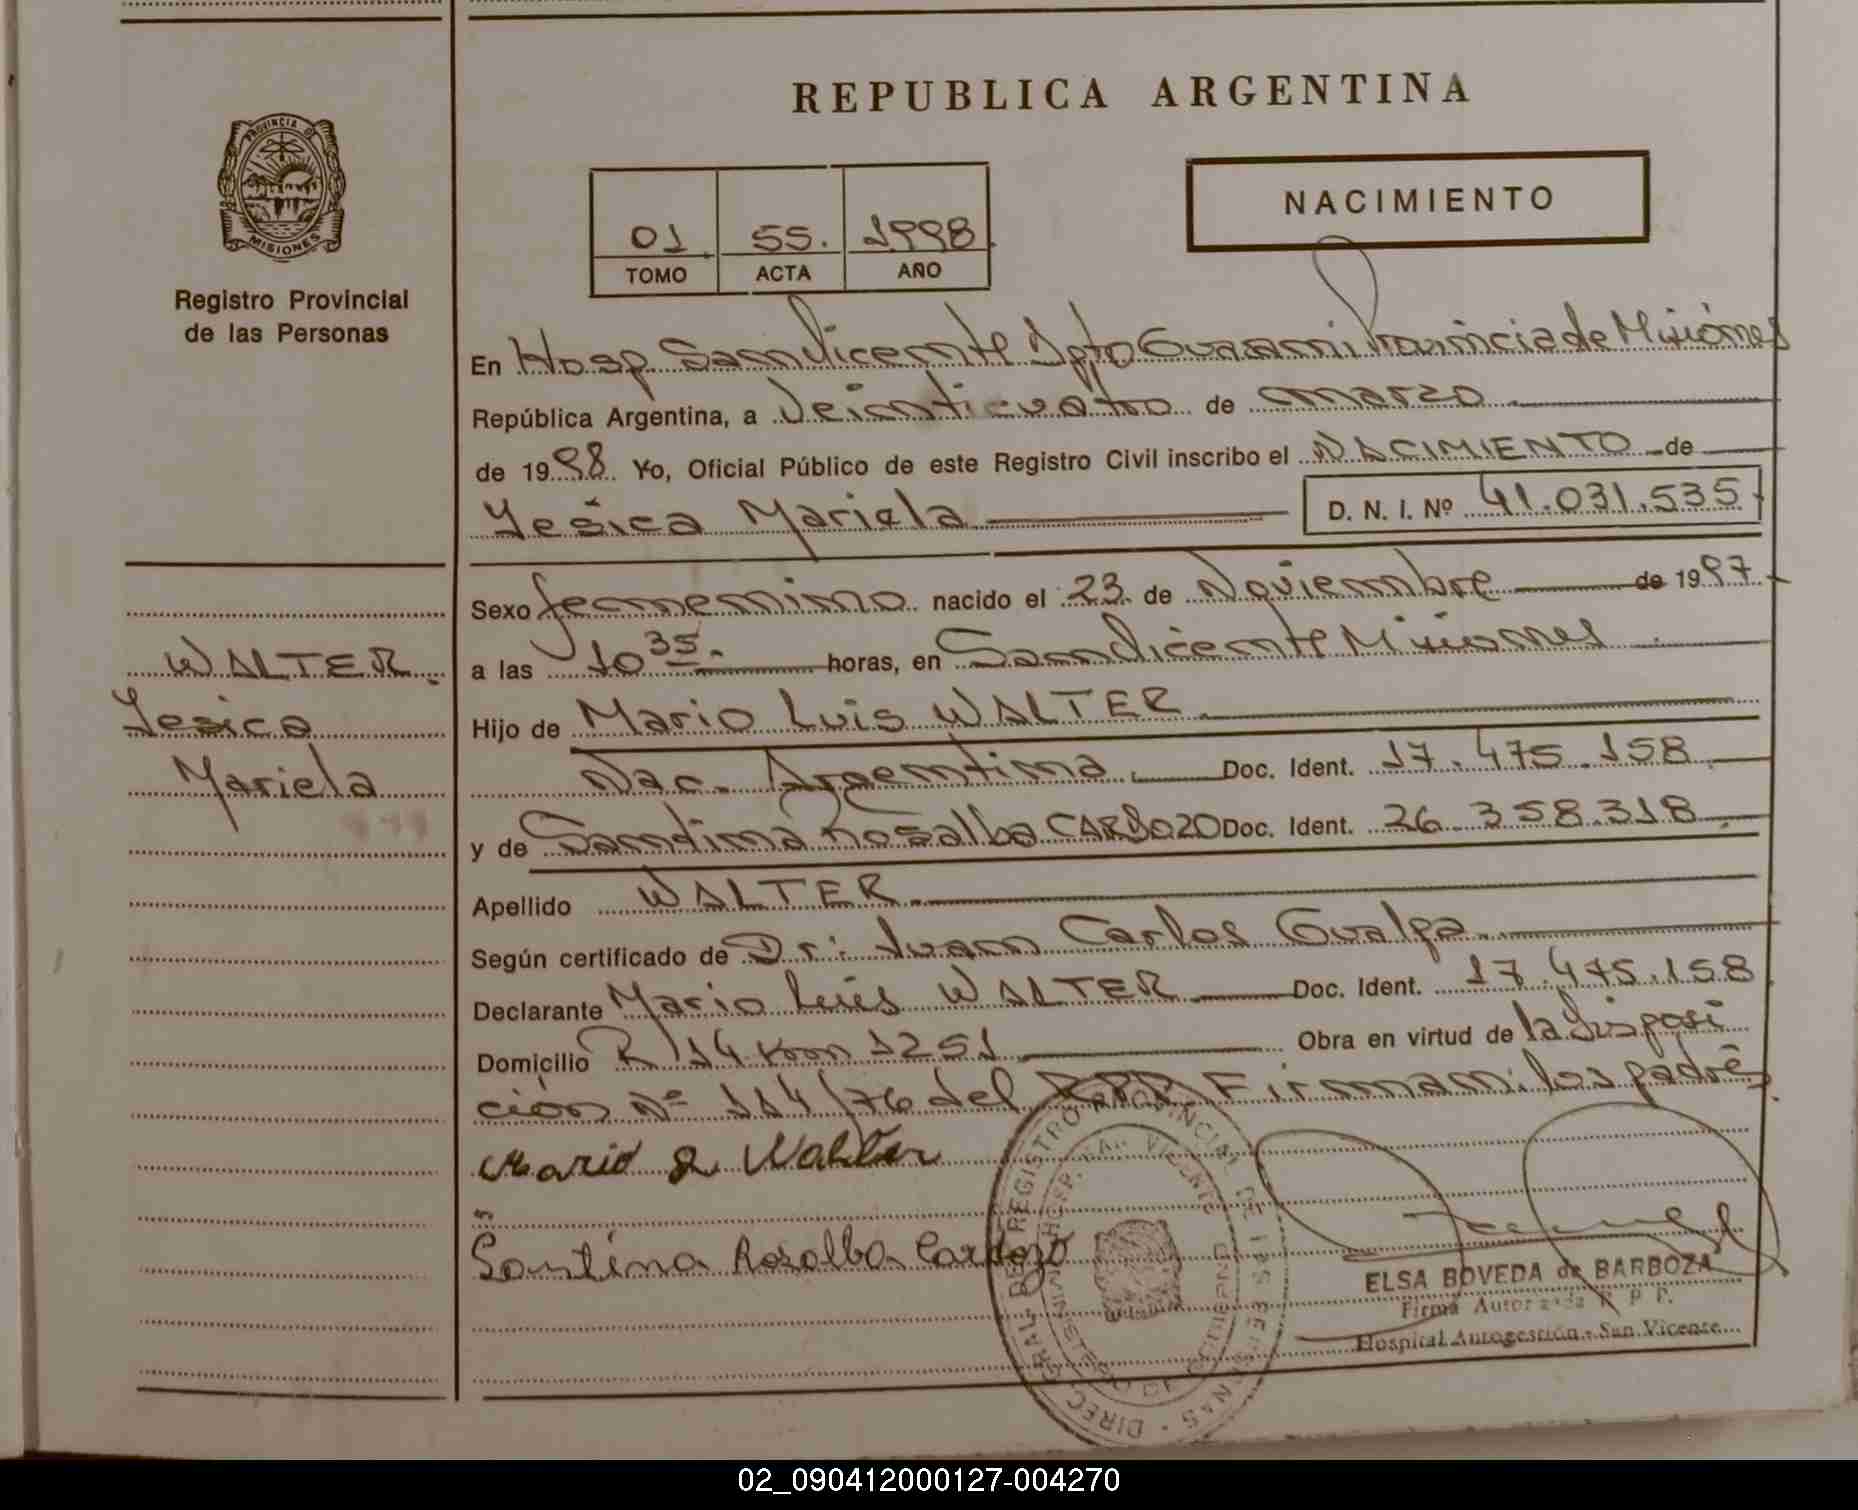 REPUBLICA ARGENTINA
PROVINCIA D
MISIONES
Registro Provincial
de las Personas
01 55. 1998
TOMO ACTA AÑO
NACIMIENTO
En Hosp. San Vicente Dpto Guarani Provincia de Misiones
República Argentina, a Veinticuatro de marzo
de 1998 Yo, Oficial Público de este Registro Civil inscribo el NACIMIENTO de
Yesica Mariela D. N. I. Nº 41.031.535
Sexo femenino nacido el 23 de Noviembre de 1997
WALTER
a las 10 35 horas, en San Vicente Misiones
Yesica
Hijo de Mario Luis WALTER
Mariela
Nac. Argentina Doc. Ident. 17.475.158
y de Santina Rosalba CARDOZO Doc. Ident. 26.358.318
Apellido WALTER
Según certificado de Dr: Juan Carlos Gualpa
Declarante Mario Luis WALTER Doc. Ident. 17.475.158
Domicilio R 14 Km 1251 Obra en virtud de la Disposi
ción Nº 114/76 del RPP Firman: los padres
Mario L Walter
Santina Rosalba Cardozo
DIREC. GRAL. DEL REGISTRO PROVINCIAL DE LAS PERSONAS
HOSP. SAN VICENTE
MINISTERIO DE GOBIERNO
ELSA BOVEDA de BARBOZA
Firma Autorizada R. P. P.
Hospital Autogestión - San Vicente
02_090412000127-004270